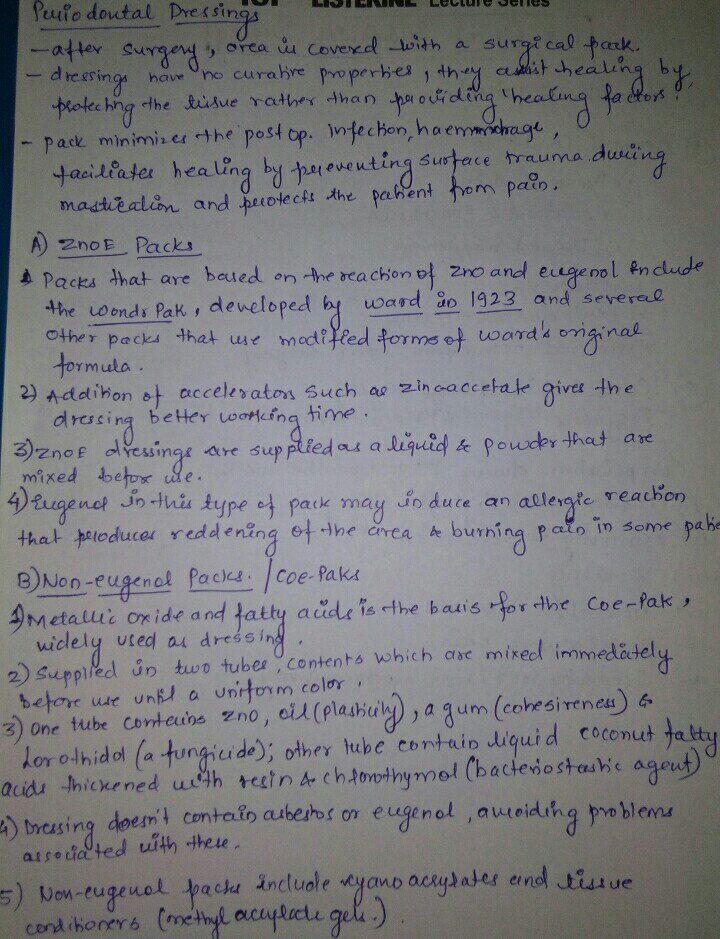 LISTERINE Lecture Series
Periodontal Dressings
- after surgery, area is covered with a surgical pack.
- dressings have no curative properties, they assist healing by
protecting the tissue rather than providing 'healing factors'.
- pack minimizes the post op. infection, haemorrhage,
faciliates healing by preventing surface trauma during
mastication and protects the patient from pain.
A) ZnOE Packs
1) Packs that are based on the reaction of ZnO and eugenol include
the Wondr Pak, developed by Ward in 1923 and several
other packs that use modified forms of ward's original
formula.
2) Addition of accelerators such as zinc accetate gives the
dressing better working time.
3) ZnOE dressings are supplied as a liquid & powder that are
mixed before use.
4) Eugenol in this type of pack may induce an allergic reaction
that produces reddening of the area & burning pain in some patie
B) Non-eugenol Packs. / Coe-Paks
1) Metallic oxide and fatty acids is the basis for the Coe-Pak,
widely used as dressing.
2) Supplied in two tubes, contents which are mixed immediately
before use until a uniform color.
3) One tube contains ZnO, oil (plasticity), a gum (cohesiveness) &
Lorothidol (a fungicide); other tube contain liquid coconut fatty
acids thickened with resin & chlorothymol (bacteriostatic agent)
4) Dressing doesn't contain asbestos or eugenol, avoiding problems
associated with these.
5) Non-eugenol packs include cyano acrylates and tissue
conditioners (methyl acrylate gels.).